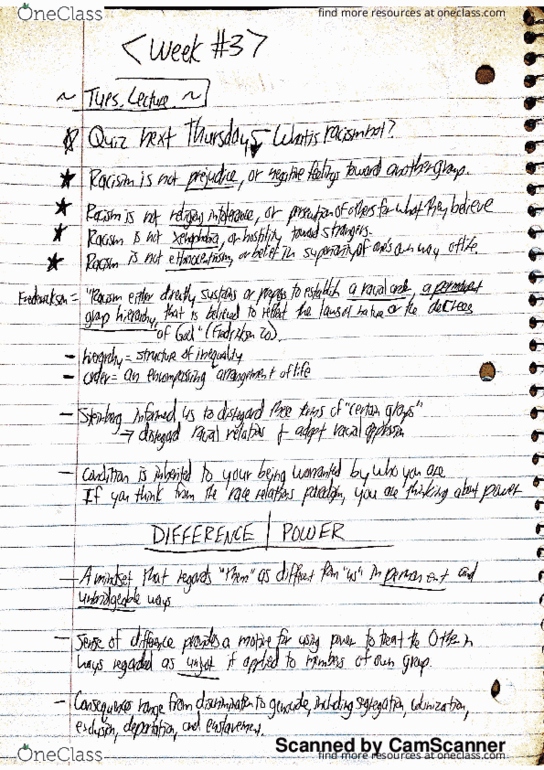 OneClass
find more resources at oneclass.com
<Week #3>
~ Tues. Lecture ~
Quiz next Thursday What is racism not?
★ Racism is not prejudice, or negative feelings toward another group.
★ Racism is not religious intolerance, or persecution of others for what they believe
★ Racism is not xenophobia, or hostility toward strangers.
★ Racism is not ethnocentrism, or belief in superiority of one's own way of life.
Fredrickson = "Racism either directly sustains or proposes to establish a racial order, a permanent
group hierarchy, that is believed to reflect the laws of nature or the decrees
of God" (Fredrickson 20).
- hierarchy = structure of inequality
- order = an encompassing arrangement of life
- Steinberg informed us to disregard these terms of "certain groups"
→ disregard racial relations & adopt racial oppression
- Condition is inherited to your being warranted by who you are
If you think from the race relations paradigm, you are thinking about power
DIFFERENCE | POWER
- A mindset that regards "them" as different from "us" in permanent and
unbridgeable ways
- Sense of difference provides a motive for using power to treat the Other in
ways regarded as unjust if applied to members of own group.
- Consequences range from discrimination to genocide, including segregation, colonization,
exclusion, deportation, and enslavement.
Scanned by CamScanner
OneClass
find more resources at oneclass.com